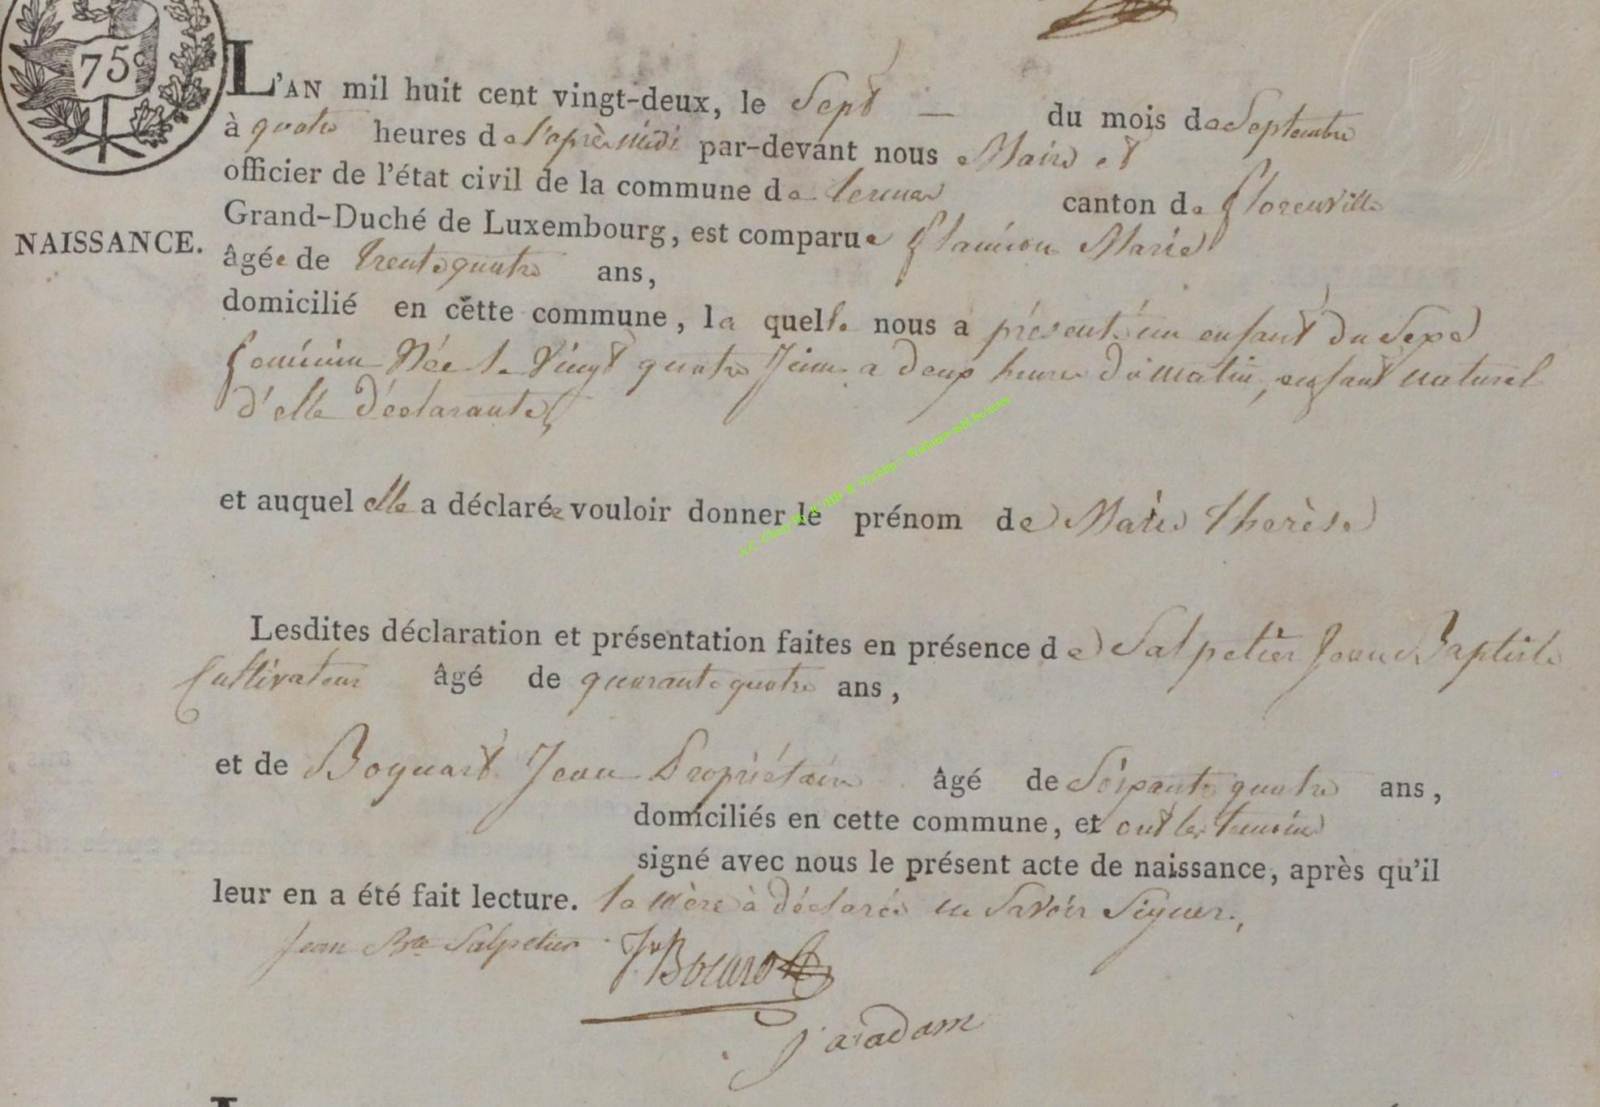 75c
L'AN mil huit cent vingt-deux, le Sept — du mois de Septembre
à quatre heures de l'après midi par-devant nous Maire et
officier de l'état civil de la commune de termes canton de florenville
Grand-Duché de Luxembourg, est comparue flamion Marie
NAISSANCE.
âgée de trente quatre ans,
domicilié en cette commune, la quelle nous a présenté un enfant du Sexe
feminin Née le Vingt quatre Juin a deux heures du matin, enfant naturel
d'elle déclarante,
et auquel elle a déclarée vouloir donner le prénom de Marie thérèse
Lesdites déclaration et présentation faites en présence de Salpetier Jean Baptiste
Cultivateur âgé de quarante quatre ans,
et de Boquart Jean Propriétaire âgé de Soixante quatre ans,
domiciliés en cette commune, et ont les temoins
signé avec nous le présent acte de naissance, après qu'il
leur en a été fait lecture. la mère à déclarée ne Savoir Signer.,
Jean Bte Salpetier